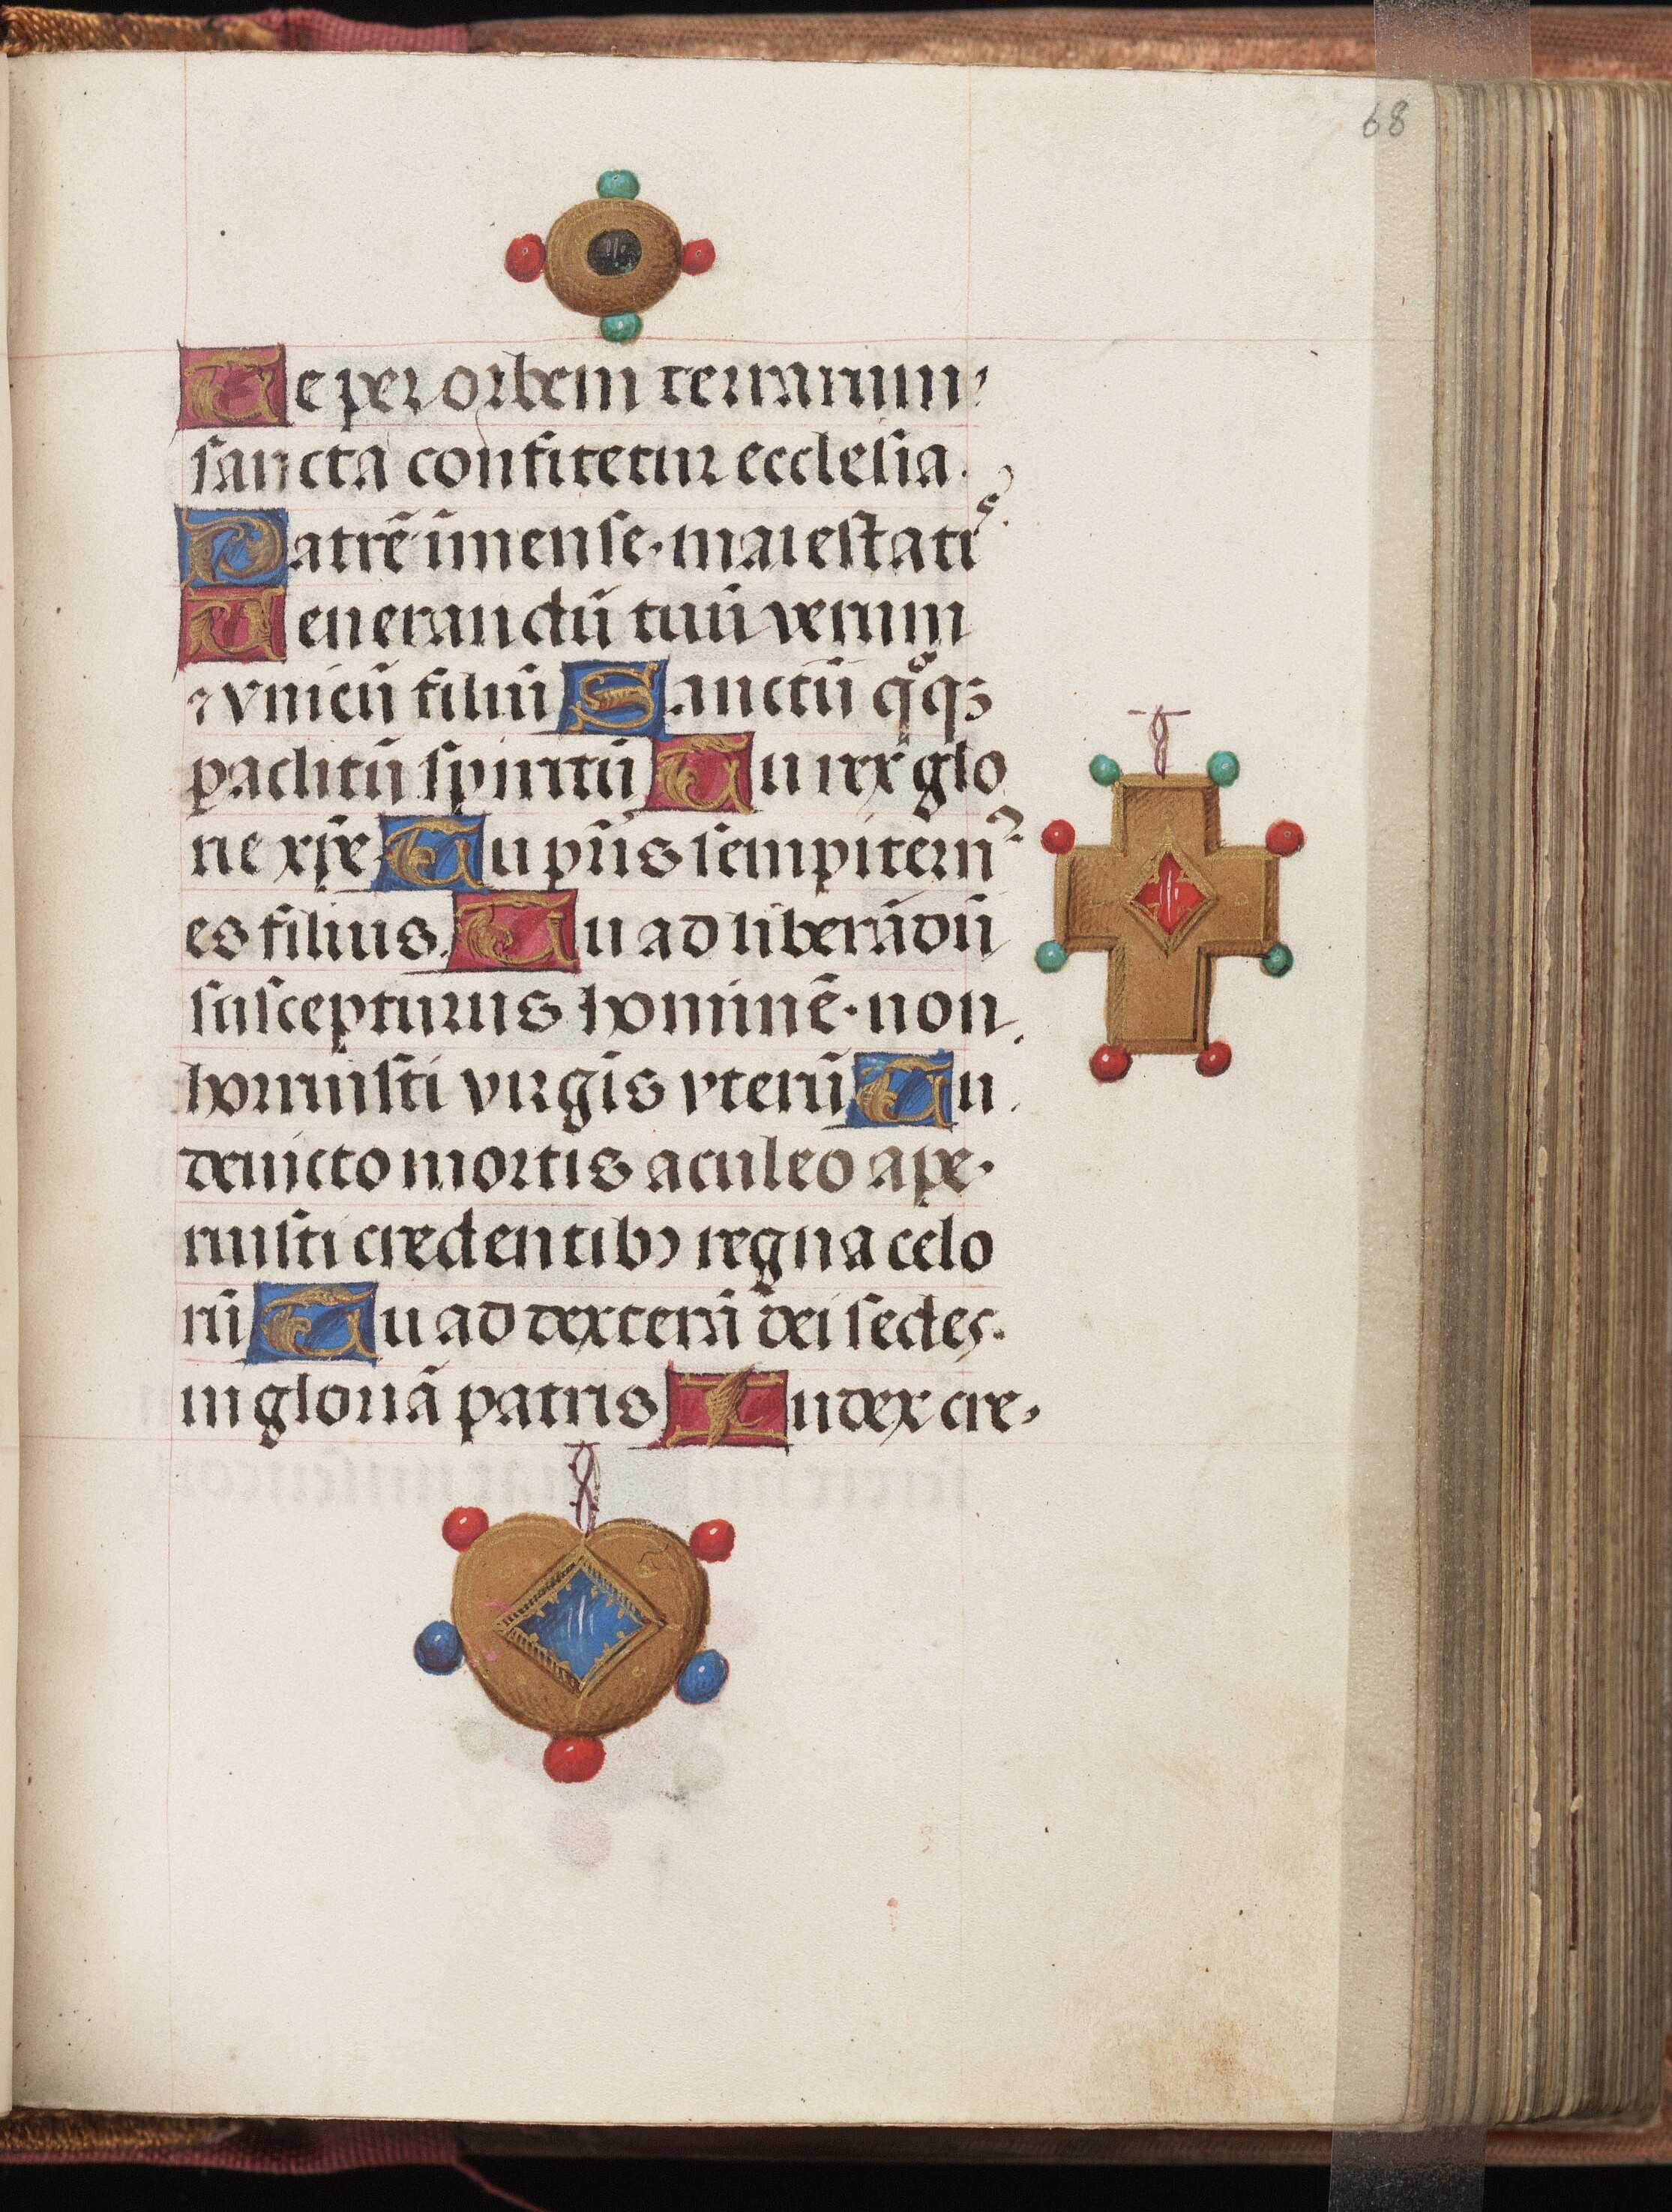 68
Te per orbem terrarum
sancta confitetur ecclesia.
Patrē īmense maiestatis
Venerandū tuū verum
⁊ vnicū filiū Sanctū qͦqꝫ
paclitū spiritū Tu rex glo
rie xp̄e Tu pr̄is sempitern⁹
es filius. Tu ad liberādū
suscepturus hominē non
horruisti virgīs vterū Tu
deuicto mortis aculeo ape
ruisti credentibꝯ regna celo
rū Tu ad dexterā dei sedes
in gloriā patris Iudex cre